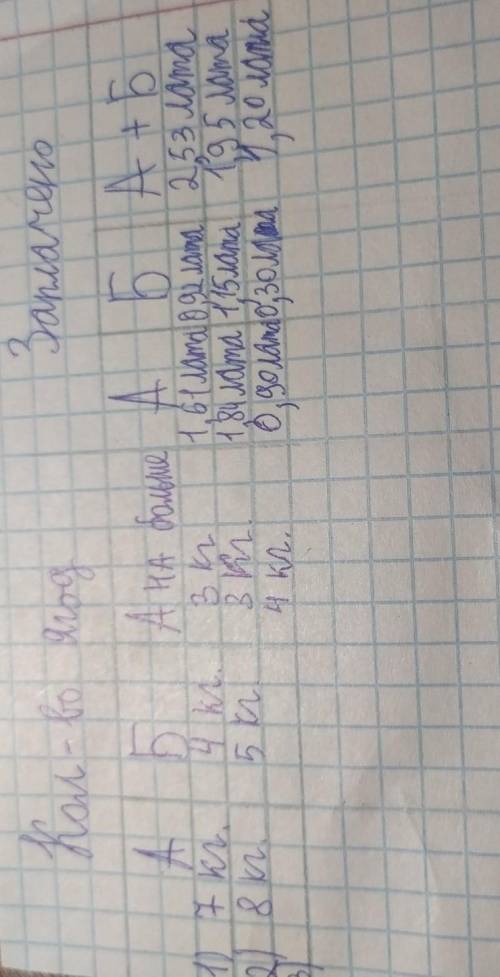 Кол-во ягод Заплачено
А Б А на больше А Б А + Б
1) 7 кг. 4 кг. 3 кг 1,61 лата 0,92 лата 2,53 лата
2) 8 кг. 5 кг. 3 кг. 1,84 лата 1,15 лата 1,95 лата
3) 4 кг. 0,90 лата 0,30 лата ,20 лата